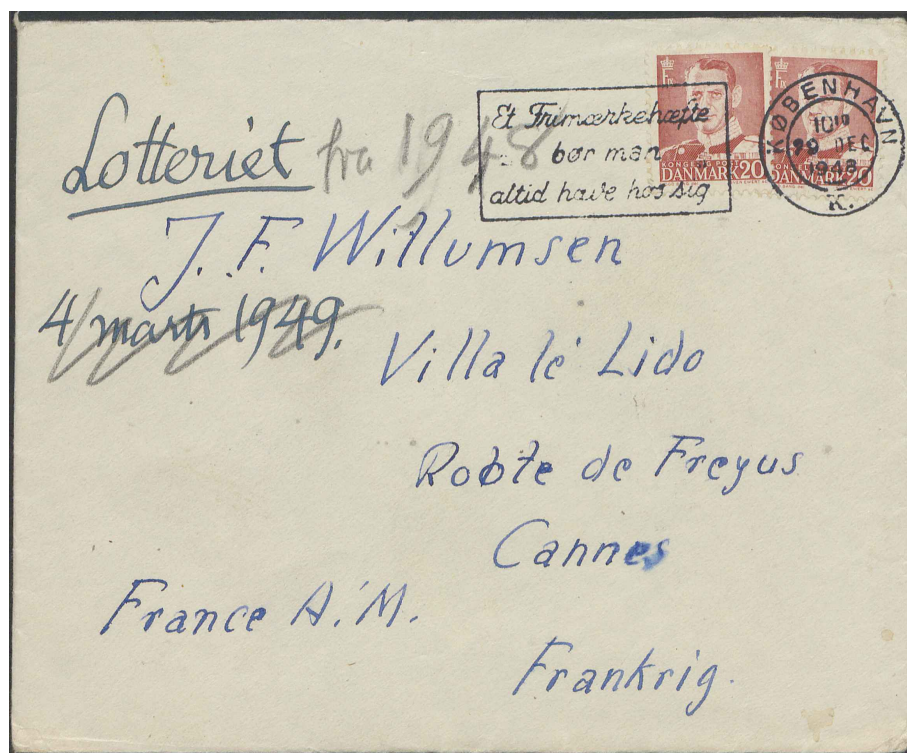 Lotteriet fra 1948
Et Frimærkehæfte
bør man
altid have hos sig
KONGELIG POST
DANMARK 20
DANMARK 20
KØBENHAVN
DEC
1948
K.
J. F. Willumsen
4/marts 1949.
Villa lé Lido
Robte de Freyus
Cannes
France A.M.
Frankrig.